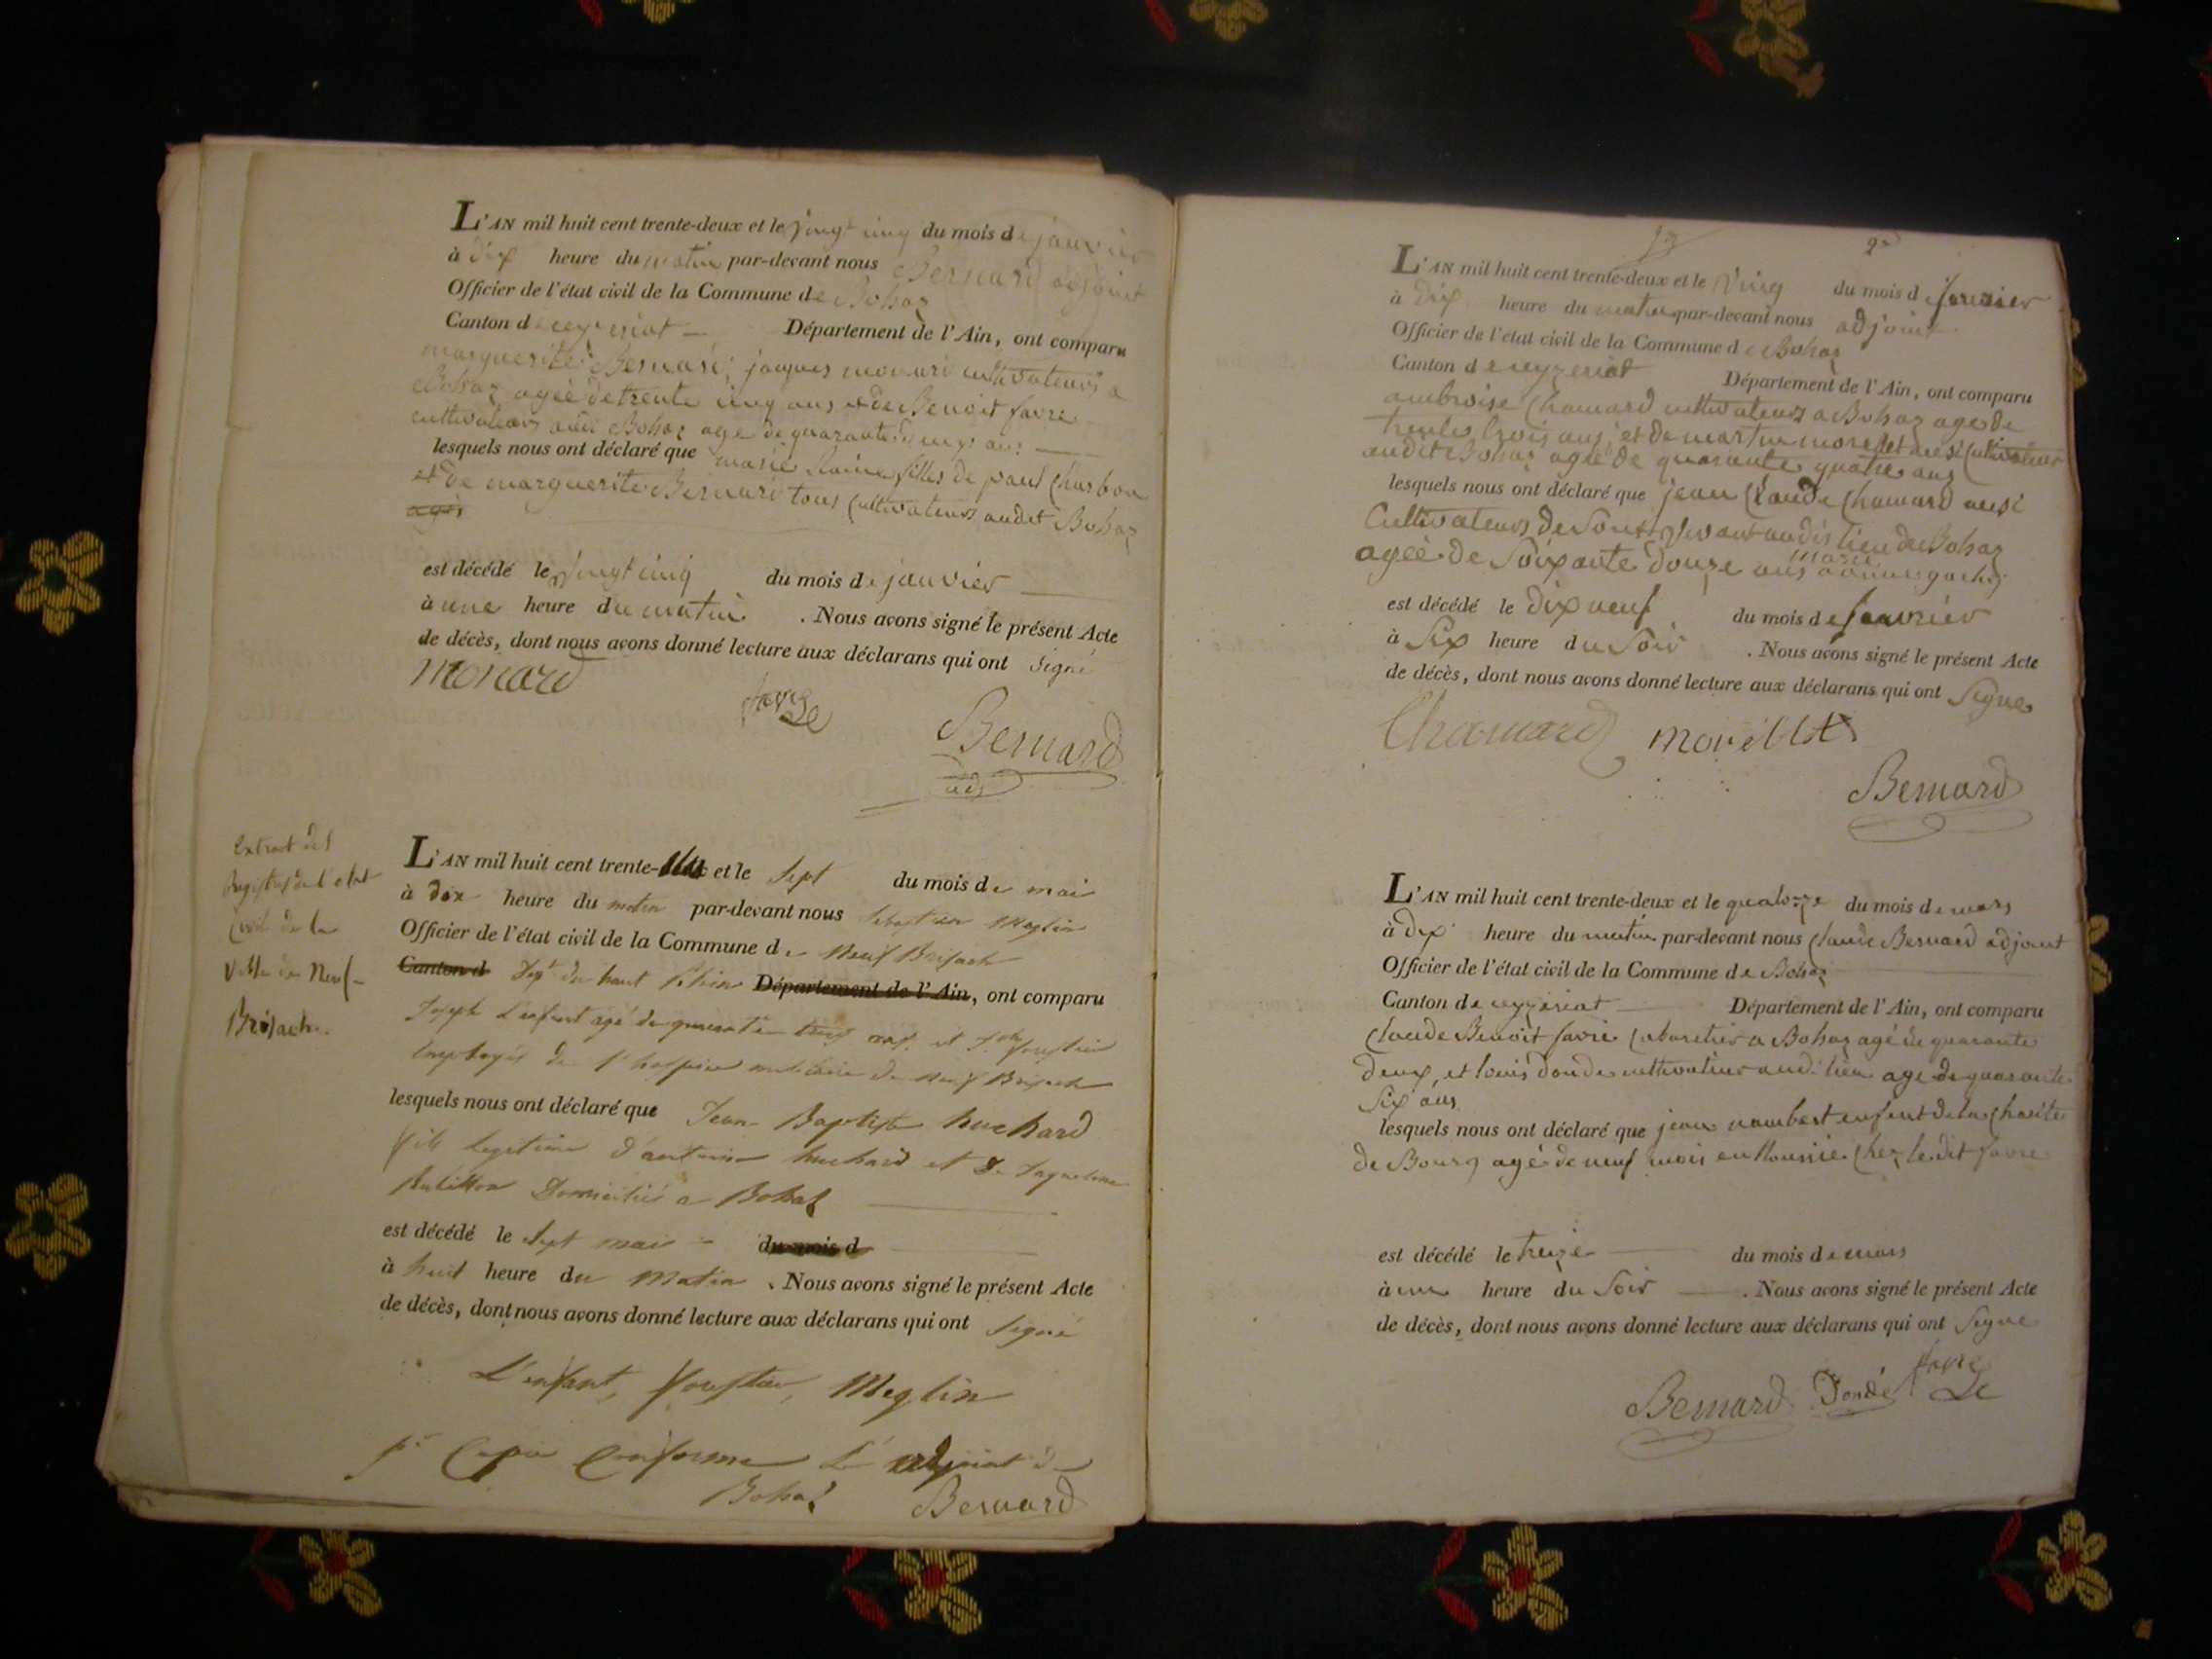 L'AN mil huit cent trente-deux et le vingt cinq du mois de janvier
à dix heure du matin par-devant nous Bernard adjoint
Officier de l'état civil de la Commune de Bohaz
Canton de ceyzeriat Département de l'Ain, ont comparu
marguerite Bernard; jaques monard cultivateurs a
Bohaz ageé de trente cinq ans et de Benoit favre
cultivateurs audi Bohaz age de quarante deux ans
lesquels nous ont déclaré que marie filles de paul Charbon
et de marguerite Bernard tous Cultivateurs audit Bohaz
agés
est décédé le vingt cinq du mois de janvier
à une heure du matin . Nous avons signé le présent Acte
de décès, dont nous avons donné lecture aux déclarans qui ont signé
monard
favre
Bernard
adj
Extrait des
Registres de l'etat
Civil de la
Ville de Neuf-
Brisach.
L'AN mil huit cent trente- et le sept du mois de mai
à dix heure du matin par-devant nous Sebastien Meglin
Officier de l'état civil de la Commune de Neuf Brisach
Canton d Dept du haut Rhin Département de l'Ain, ont comparu
Joseph L'enfant agé de quarante ans et
Employés de l'hospice militaire de Neuf Brisach
lesquels nous ont déclaré que Jean Baptiste huchard
fils legitime d'antoine huchard et de Jaqueline
Domicilié a Bohaz
est décédé le sept mai du mois d
à huit heure du Matin . Nous avons signé le présent Acte
de décès, dont nous avons donné lecture aux déclarans qui ont signé
L'enfant, Meglin
pr Copie Conforme L'adjoint de
Bohaz Bernard
L'AN mil huit cent trente-deux et le ving du mois de janvier
à dix heure du matin par-devant nous adjoint
Officier de l'état civil de la Commune de Bohaz
Canton de ceyzeriat Département de l'Ain, ont comparu
ambroise Chanard cultivateurs a Bohaz age de
trente trois ans, et de martin morellet aussi Cultivateur
audit Bohaz agé de quarante quatre ans
lesquels nous ont déclaré que jean Claude Chanard ausi
Cultivateurs de Son vivant audis lieu de Bohaz
ageé de soixante douze ans
est décédé le dix neuf du mois de janvier
à Six heure du Soir . Nous avons signé le présent Acte
de décès, dont nous avons donné lecture aux déclarans qui ont Signe
Chanard morellet
Bernard
L'AN mil huit cent trente-deux et le quatorze du mois de mars
à dix heure du matin par-devant nous Claude Bernard adjoint
Officier de l'état civil de la Commune de Bohaz
Canton de ceyzeriat Département de l'Ain, ont comparu
Claude Benoit favre Cabaretier a Bohaz agé de quarante
deux, et louis donde cultivateur audi lieu age de quarante
Six ans
lesquels nous ont déclaré que jean nambert enfent de la Charite
de Bourg agé de neuf mois en Nourrie Chez le dit favre
est décédé le treize du mois de mars
à une heure du Soir . Nous avons signé le présent Acte
de décès, dont nous avons donné lecture aux déclarans qui ont Signe
Bernard Dondé favre